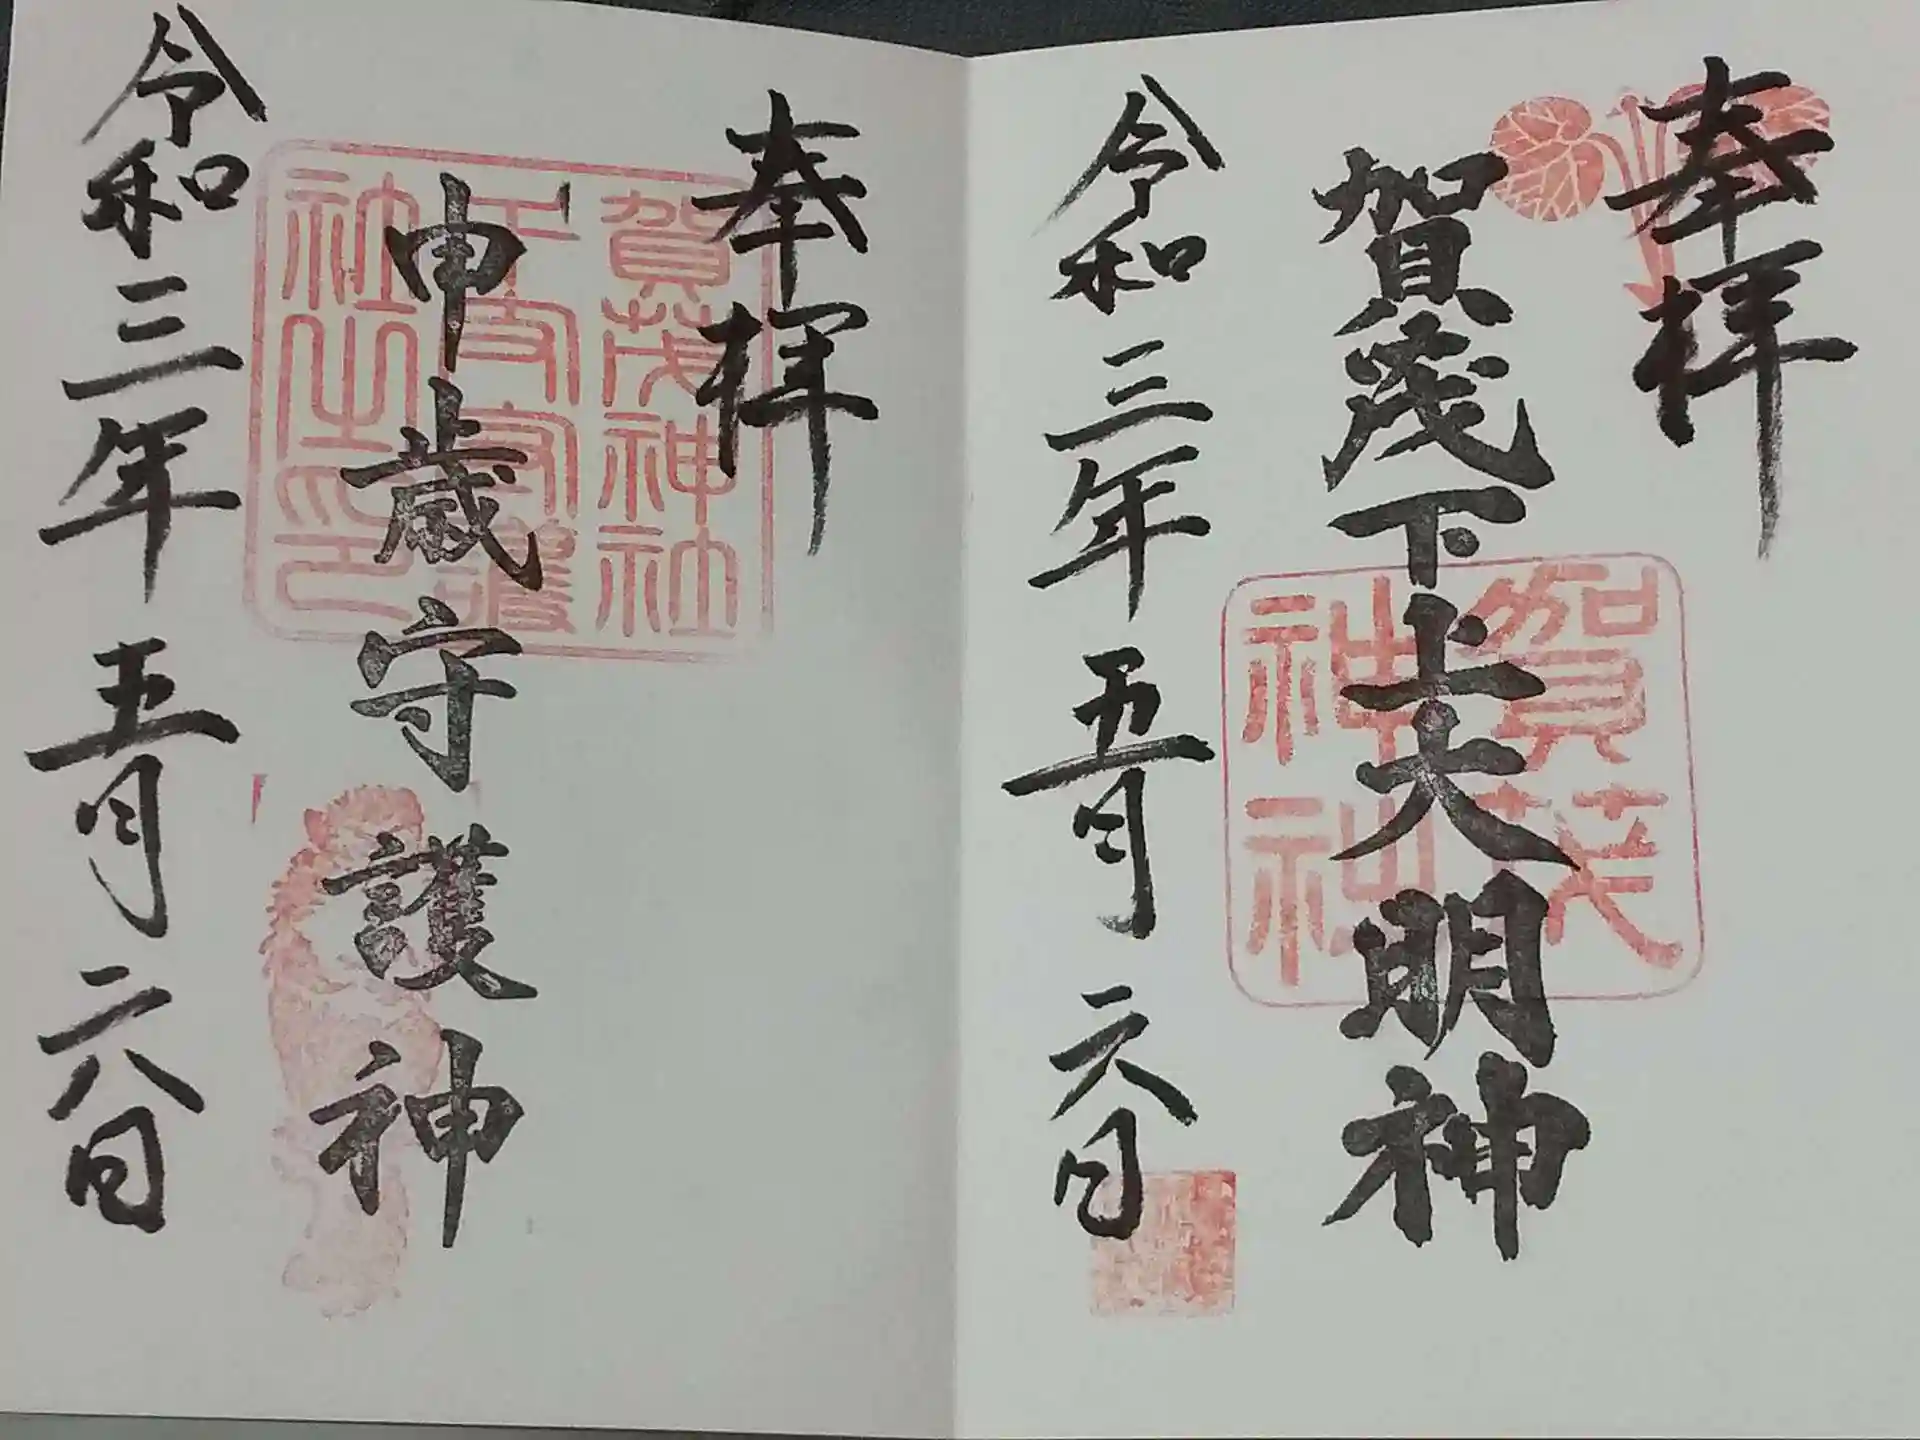 奉拝
賀茂下上大明神
賀茂神社
令和三年五月六日
奉拝
賀茂神社
申歳守護神
社之印
令和三年五月六日